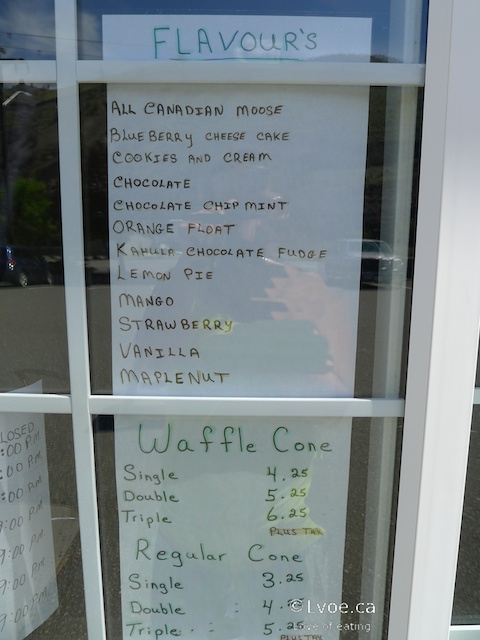 FLAVOUR'S
ALL CANADIAN MOOSE
BLUEBERRY CHEESE CAKE
COOKIES AND CREAM
CHOCOLATE
CHOCOLATE CHIP MINT
ORANGE FLOAT
KAHULA CHOCOLATE FUDGE
LEMON PIE
MANGO
STRAWBERRY
VANILLA
MAPLENUT
Waffle Cone
Single 4.25
Double 5.25
Triple 6.25
PLUS TAX
Regular Cone
Single 3.25
Double 4.
Triple 5.25
PLUS TAX
LOSED
:00 PM
:00 PM
:00 PM
9:00 PM
9:00 PM
9:00 PM
9:00 PM
©Lvoe.ca
love of eating